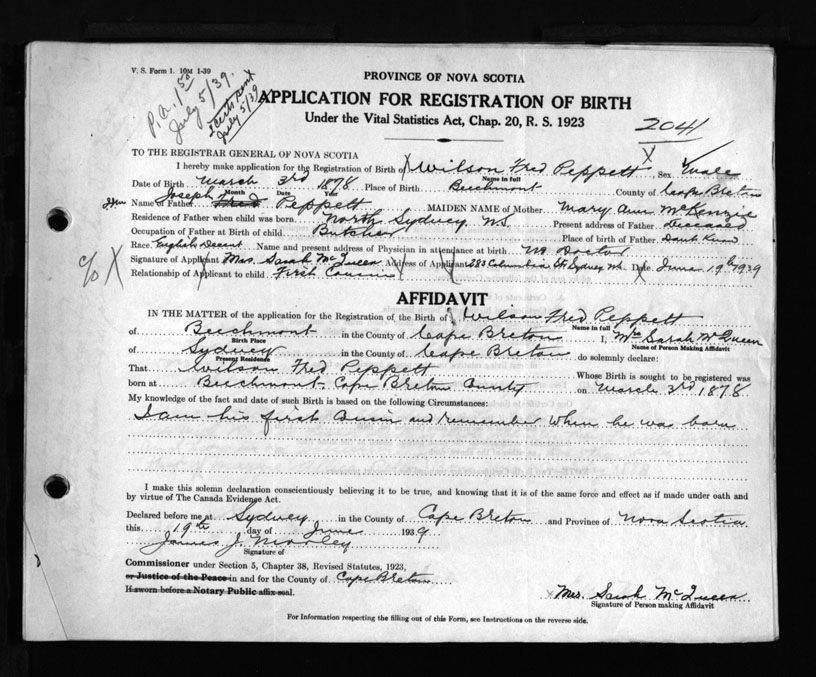 V. S. Form 1. 10M 1-39
P.A. 1.50
July 5/39.
2 certs sent
July 5/39
PROVINCE OF NOVA SCOTIA
APPLICATION FOR REGISTRATION OF BIRTH
Under the Vital Statistics Act, Chap. 20, R. S. 1923
2041
TO THE REGISTRAR GENERAL OF NOVA SCOTIA
I hereby make application for the Registration of Birth of Wilson Fred Peppett Sex Male
Name in full
Date of Birth March 3rd 1878 Place of Birth Beechmont County of Cape Breton
Month Date Year
Name of Father Joseph Fred Peppett MAIDEN NAME of Mother Mary Ann McKenzie
Residence of Father when child was born North Sydney N.S. Present address of Father Deceased
Occupation of Father at Birth of child Butcher Place of birth of Father Don't Know
Race English Decent Name and present address of Physician in attendance at birth No Doctor
Signature of Applicant Mrs. Sarah McQueen Address of Applicant 283 Columbia St. Sydney N.S. Date June 19th 1939
Relationship of Applicant to child First Cousin
c/o X
AFFIDAVIT
IN THE MATTER of the application for the Registration of the Birth of Wilson Fred Peppett
Name in full
of Beechmont in the County of Cape Breton I, Mrs Sarah McQueen
Birth Place Name of Person Making Affidavit
of Sydney in the County of Cape Breton do solemnly declare:
Present Residence
That Wilson Fred Peppett Whose Birth is sought to be registered was
born at Beechmont Cape Breton County on March 3rd 1878
My knowledge of the fact and date of such Birth is based on the following Circumstances:
I am his first Cousin and remember when he was born
I make this solemn declaration conscientiously believing it to be true, and knowing that it is of the same force and effect as if made under oath and
by virtue of The Canada Evidence Act.
Declared before me at Sydney in the County of Cape Breton and Province of Nova Scotia
this 19th day of June 1939
James J.
Signature of
Commissioner under Section 5, Chapter 38, Revised Statutes, 1923,
or Justice of the Peace in and for the County of Cape Breton
If sworn before a Notary Public affix seal.
Mrs. Sarah McQueen
Signature of Person making Affidavit
For Information respecting the filling out of this Form, see Instructions on the reverse side.